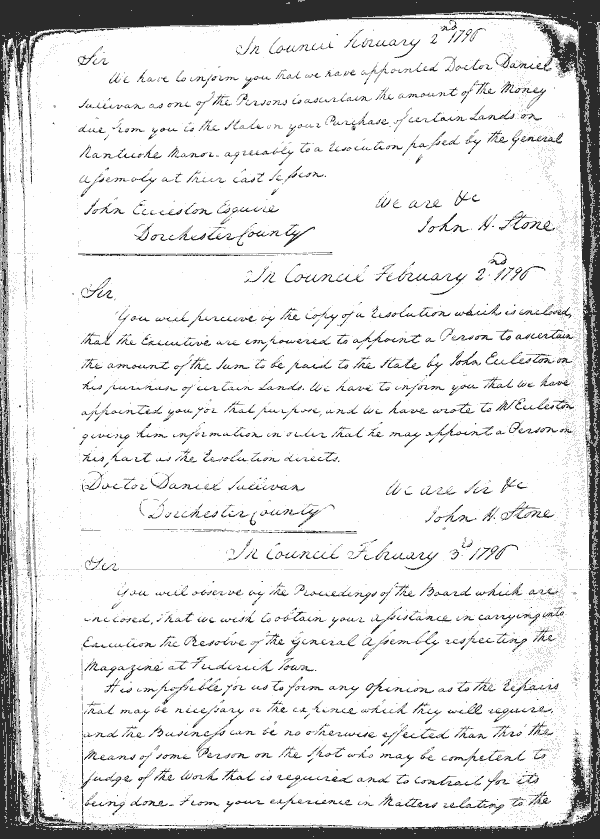 In Council February 2nd 1796
Sir
We have to inform you that we have appointed Doctor Daniel
Sullivan as one of the Persons to ascertain the amount of the Money
due from you to the State on your Purchase of certain Lands on
Nanticoke Manor. agreeably to a resolution passed by the General
Assembly at their last Session.
John Eccleston Esquire We are &c
Dorchester County John H. Stone
In Council February 2nd 1796
Sir,
You will perceive by the Copy of a Resolution which is enclosed,
that the Executive are empowered to appoint a Person to ascertain
the amount of the Sum to be paid to the State by John Eccleston on
his purchase of certain Lands. We have to inform you that we have
appointed you for that purpose, and we have wrote to Mr Eccleston
giving him information in order that he may appoint a Person on
his part as the Resolution directs.
Doctor Daniel Sullivan We are Sir &c
Dorchester County John H. Stone
In Council February 3d 1796
Sir
You will observe by the Proceedings of the Board which are
inclosed, that we wish to obtain your assistance in carrying into
Execution the Resolve of the General Assembly respecting the
Magazine at Frederick Town.
It is impossible for us to form any opinion as to the repairs
that may be necessary or the expence which they will require,
and the Business can be no otherwise effected than thro the
Means of some Person on the Spot who may be competent to
judge of the Work that is required and to contract for its
being done. From your experience in Matters relating to the